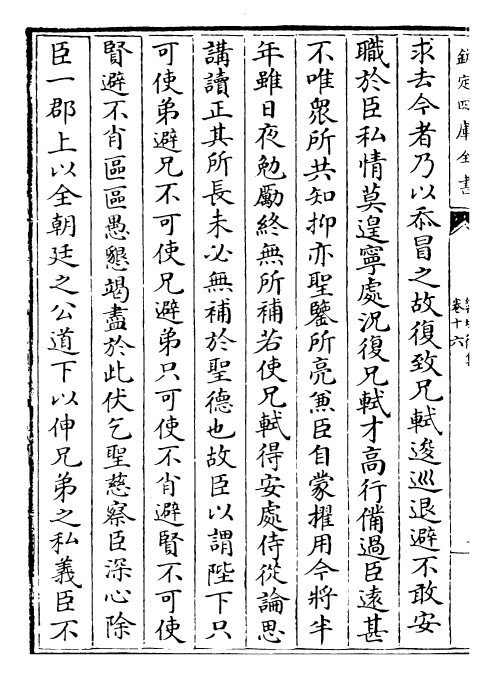 欽定四庫全書
卷十六
求去今者乃以忝冒之故復致兄軾逡巡退避不敢安
職於臣私情莫遑寧處況復兄軾才高行備過臣遠甚
不唯衆所共知抑亦聖鑒所亮兼臣自蒙擢用今將半
年雖日夜勉勵終無所補若使兄軾得安處侍從論思
講讀正其所長未必無補於聖德也故臣以謂陛下只
可使弟避兄不可使兄避弟只可使不肖避賢不可使
賢避不肖區區愚懇竭盡於此伏乞聖慈察臣深心除
臣一郡上以全朝廷之公道下以伸兄弟之私義臣不